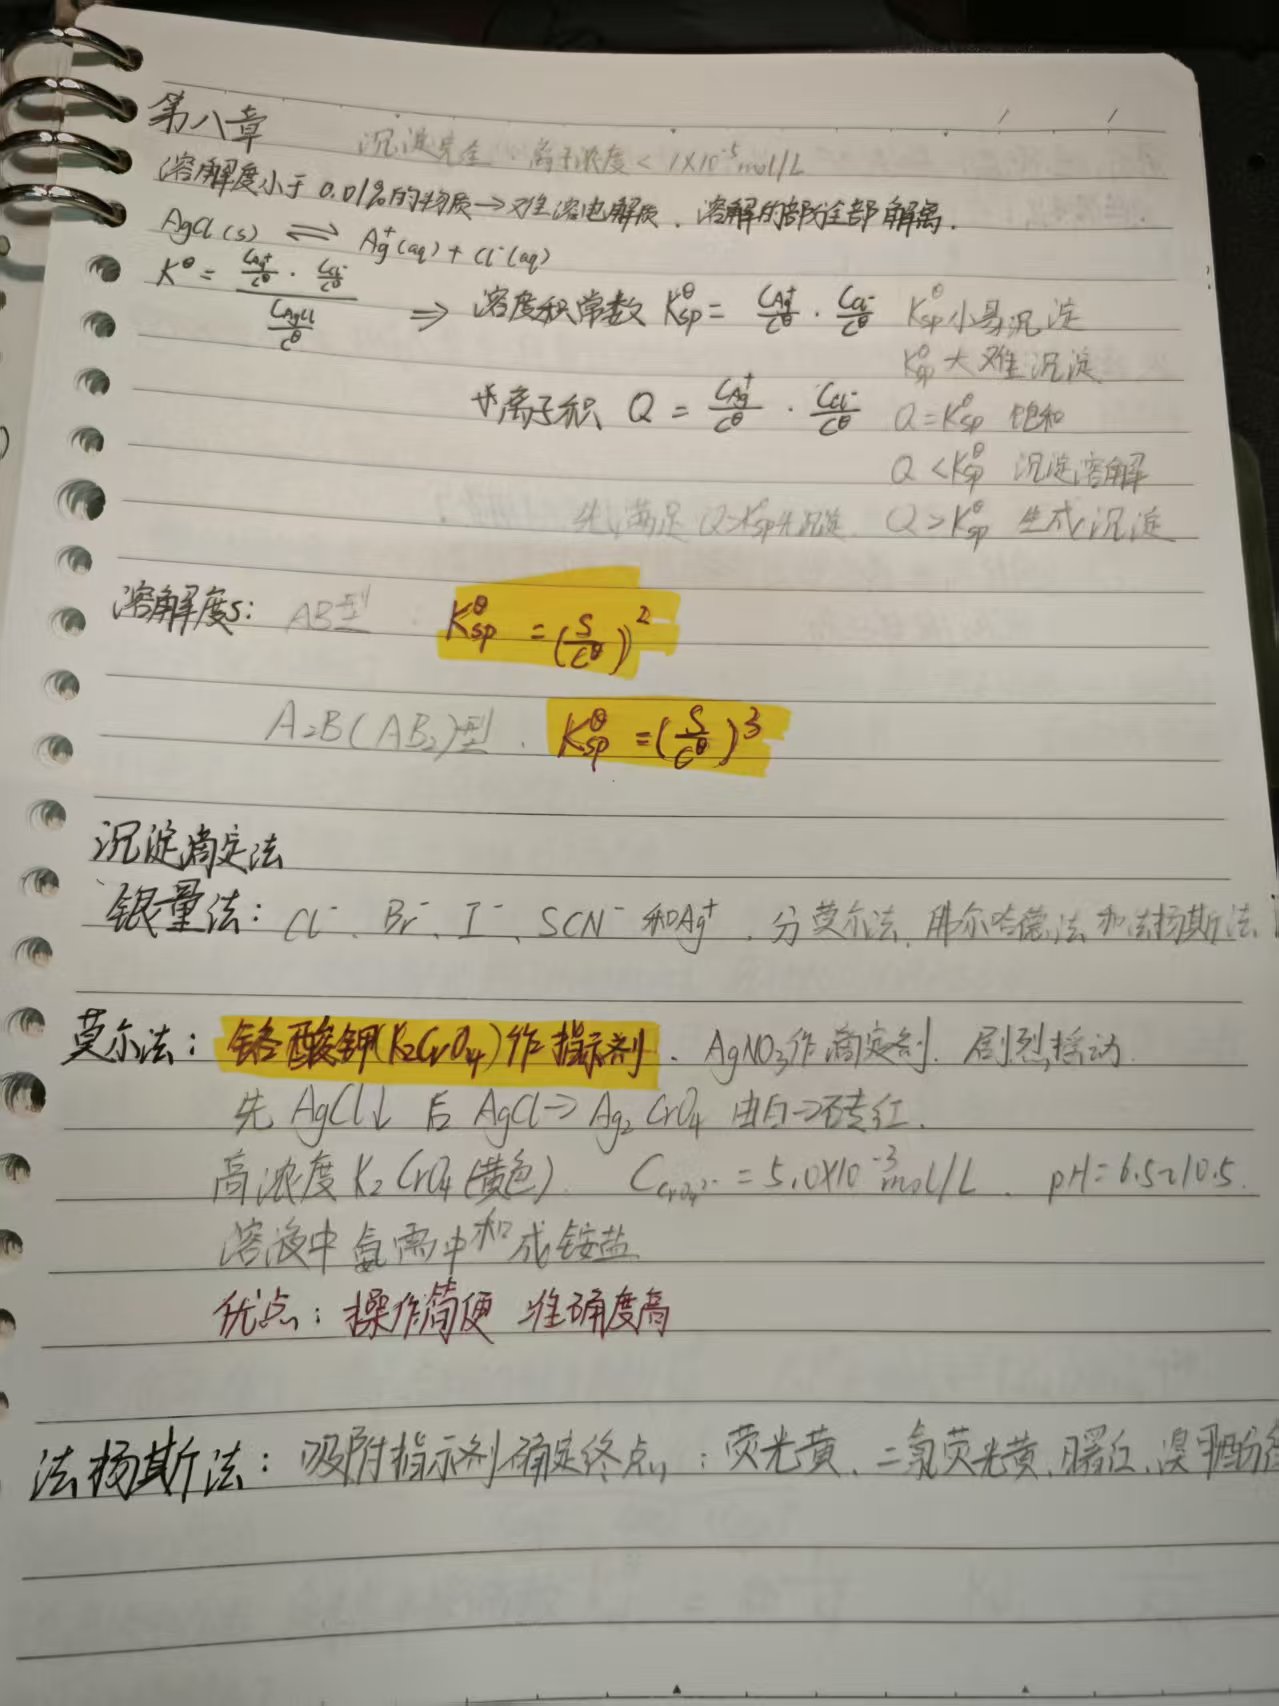 第八章
沉淀完全：离子浓度 < 1×10⁻⁵mol/L
溶解度小于 0.01%的物质→难溶电解质．溶解的部分全部解离．
AgCl(s) ⇌ Ag⁺(aq) + Cl⁻(aq)
K^θ = (C_Ag⁺/C^θ · C_Cl⁻/C^θ) / (C_AgCl/C^θ) ⇒ 溶度积常数 K_sp^θ = C_Ag⁺/C^θ · C_Cl⁻/C^θ K_sp^θ 小易沉淀
K_sp^θ 大难沉淀
离子积 Q = C_Ag⁺/C^θ · C_Cl⁻/C^θ Q = K_sp^θ 饱和
Q < K_sp^θ 沉淀溶解
先满足 Q>Ksp先沉淀. Q > K_sp^θ 生成沉淀
溶解度s： AB型 : K_sp^θ = (S/C^θ)²
A₂B(AB₂)型. K_sp^θ = (S/C^θ)³
沉淀滴定法
银量法：Cl⁻、Br⁻、I⁻、SCN⁻ 和Ag⁺．分莫尔法、佛尔哈德法和法扬斯法
莫尔法：铬酸钾(K₂CrO₄)作指示剂．AgNO₃作滴定剂．剧烈摇动.
先 AgCl↓ 后 AgCl→Ag₂CrO₄ 由白→砖红.
高浓度 K₂CrO₄(黄色). C_CrO₄²⁻ = 5.0×10⁻³mol/L . pH=6.5~10.5.
溶液中氨需中和成铵盐
优点：操作简便 准确度高
法扬斯法：吸附指示剂确定终点：荧光黄、二氯荧光黄、曙红、溴